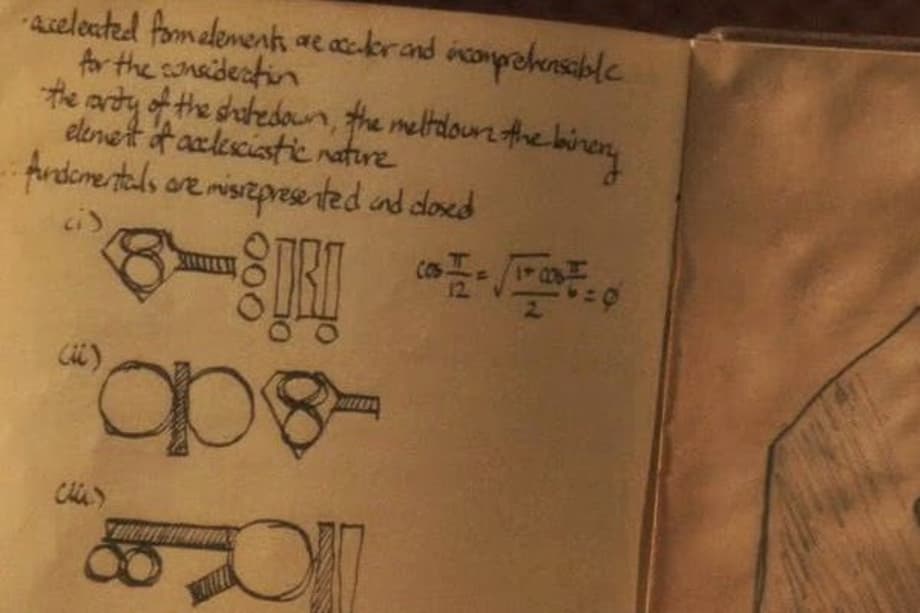 · accelerated form elements are occular and incomprehensable
for the consideration
· the rarity of the shakedown, the meltdown the binary
element of acclesciastic nature
· fundamentals are misrepresented and closed
(i)
cos π/12 = √(1+cos π/6 / 2) = ø
(ii)
(iii)